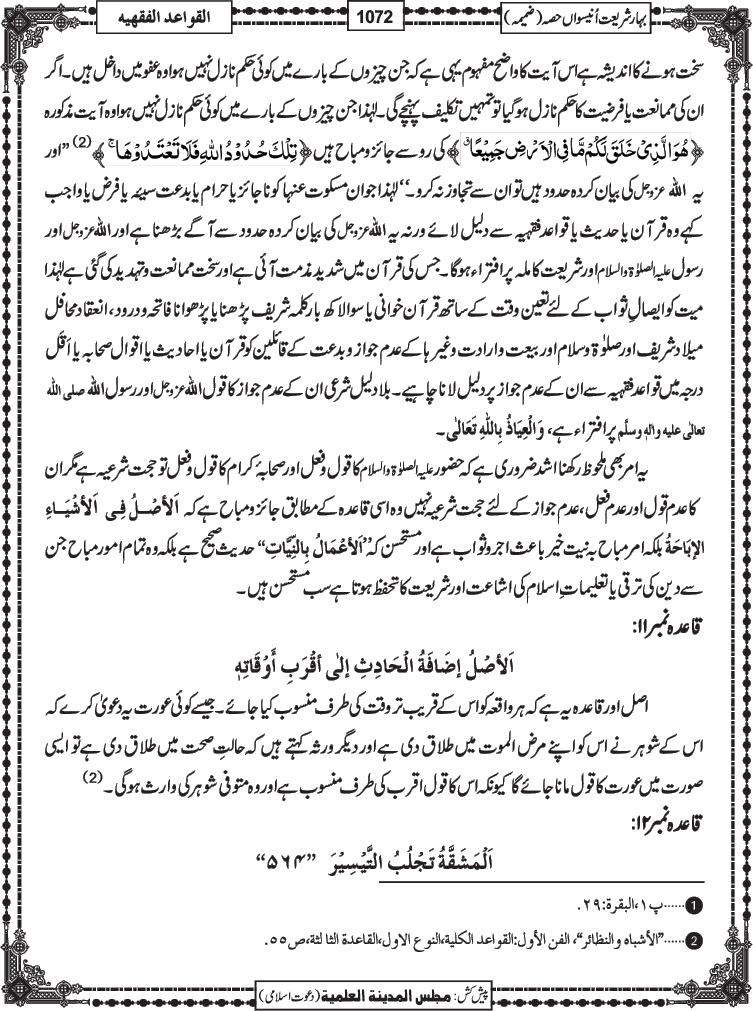 بہارِ شریعت اُنیسواں حصہ (ضمیمہ)
1072
القواعد الفقھیه
سخت ہونے کا اندیشہ ہے اس آیت کا واضح مفہوم یہی ہے کہ جن چیزوں کے بارے میں کوئی حکم نازل نہیں ہوا وہ عفو میں داخل ہیں۔ اگر
ان کی ممانعت یا فرضیت کا حکم نازل ہو گیا تو تمہیں تکلیف پہنچے گی۔ لہٰذا جن چیزوں کے بارے میں کوئی حکم نازل نہیں ہوا وہ آیت مذکورہ
﴿هُوَ الَّذِیْ خَلَقَ لَكُمْ مَّا فِی الْاَرْضِ جَمِیْعًاۗ﴾ کی رو سے جائز و مباح ہیں ﴿تِلْكَ حُدُوْدُ اللّٰهِ فَلَا تَعْتَدُوْهَاۚ﴾ (2) ”اور
یہ اللہ عزوجل کی بیان کردہ حدود ہیں تو ان سے تجاوز نہ کرو۔“ لہٰذا جو ان مسکوت عنہا کو ناجائز یا حرام یا بدعت سیئہ یا فرض یا واجب
کہے وہ قرآن یا حدیث یا قواعد فقہیہ سے دلیل لائے ورنہ یہ اللہ عزوجل کی بیان کردہ حدود سے آگے بڑھنا ہے اور اللہ عزوجل اور
رسول علیہ الصلوٰۃ والسلام اور شریعت کاملہ پر افتراء ہوگا۔ جس کی قرآن میں شدید مذمت آئی ہے اور سخت ممانعت و تہدید کی گئی ہے لہٰذا
میت کو ایصالِ ثواب کے لئے تعین وقت کے ساتھ قرآن خوانی یا سوا لاکھ بار کلمہ شریف پڑھنا یا پڑھوانا فاتحہ و درود، انعقاد محافل
میلاد شریف اور صلوٰۃ وسلام اور بیعت و ارادت وغیرہا کے عدم جواز و بدعت کے قائلین کو قرآن یا احادیث یا اقوال صحابہ یا اَقَل
درجہ میں قواعد فقہیہ سے ان کے عدم جواز پر دلیل لانا چاہیے۔ بلا دلیل شرعی ان کے عدم جواز کا قول اللہ عزوجل اور رسول اللہ صلی اللہ
تعالٰی علیہ والہٖ وسلَّم پر افتراء ہے، وَالْعِیَاذُ بِاللّٰهِ تَعَالٰی۔
یہ امر بھی ملحوظ رکھنا اشد ضروری ہے کہ حضور علیہ الصلوٰۃ والسلام کا قول و فعل اور صحابۂ کرام کا قول و فعل تو حجت شرعیہ ہے مگر ان
کا عدم قول اور عدم فعل، عدم جواز کے لئے حجت شرعیہ نہیں وہ اسی قاعدہ کے مطابق جائز و مباح ہے کہ اَلْاَصْلُ فِی الْاَشْیَاءِ
الْاِبَاحَةُ بلکہ امر مباح بہ نیت خیر باعث اجر و ثواب ہے اور مستحسن کہ ”اَلْاَعْمَالُ بِالنِّیَّاتِ“ حدیث صحیح ہے بلکہ وہ تمام امور مباح جن
سے دین کی ترقی یا تعلیماتِ اسلام کی اشاعت اور شریعت کا تحفظ ہوتا ہے سب مستحسن ہیں۔
قاعدہ نمبر ۱۱:
اَلْاَصْلُ إِضَافَةُ الْحَادِثِ إِلٰی أَقْرَبِ أَوْقَاتِهٖ
اصل اور قاعدہ یہ ہے کہ ہر واقعہ کو اس کے قریب تر وقت کی طرف منسوب کیا جائے۔ جیسے کوئی عورت یہ دعویٰ کرے کہ
اس کے شوہر نے اس کو اپنے مرض الموت میں طلاق دی ہے اور دیگر ورثہ کہتے ہیں کہ حالتِ صحت میں طلاق دی ہے تو ایسی
صورت میں عورت کا قول مانا جائے گا کیونکہ اس کا قول اقرب کی طرف منسوب ہے اور وہ متوفی شوہر کی وارث ہوگی۔ (2)
قاعدہ نمبر ۱۲:
اَلْمَشَقَّةُ تَجْلُبُ التَّيْسِيْرَ ”۵۶۴“
1 ......پ۱،البقرة:۲۹.
2 ......”الأشباه والنظائر“، الفن الأول:القواعد الكلية،النوع الاول،القاعدة الثالثة،ص۵۵.
پیش کش: مجلس المدینة العلمیة (دعوت اسلامی)